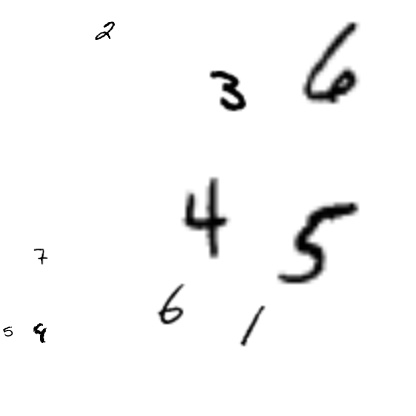 2
3 6
4 5
7
6 1
5 9